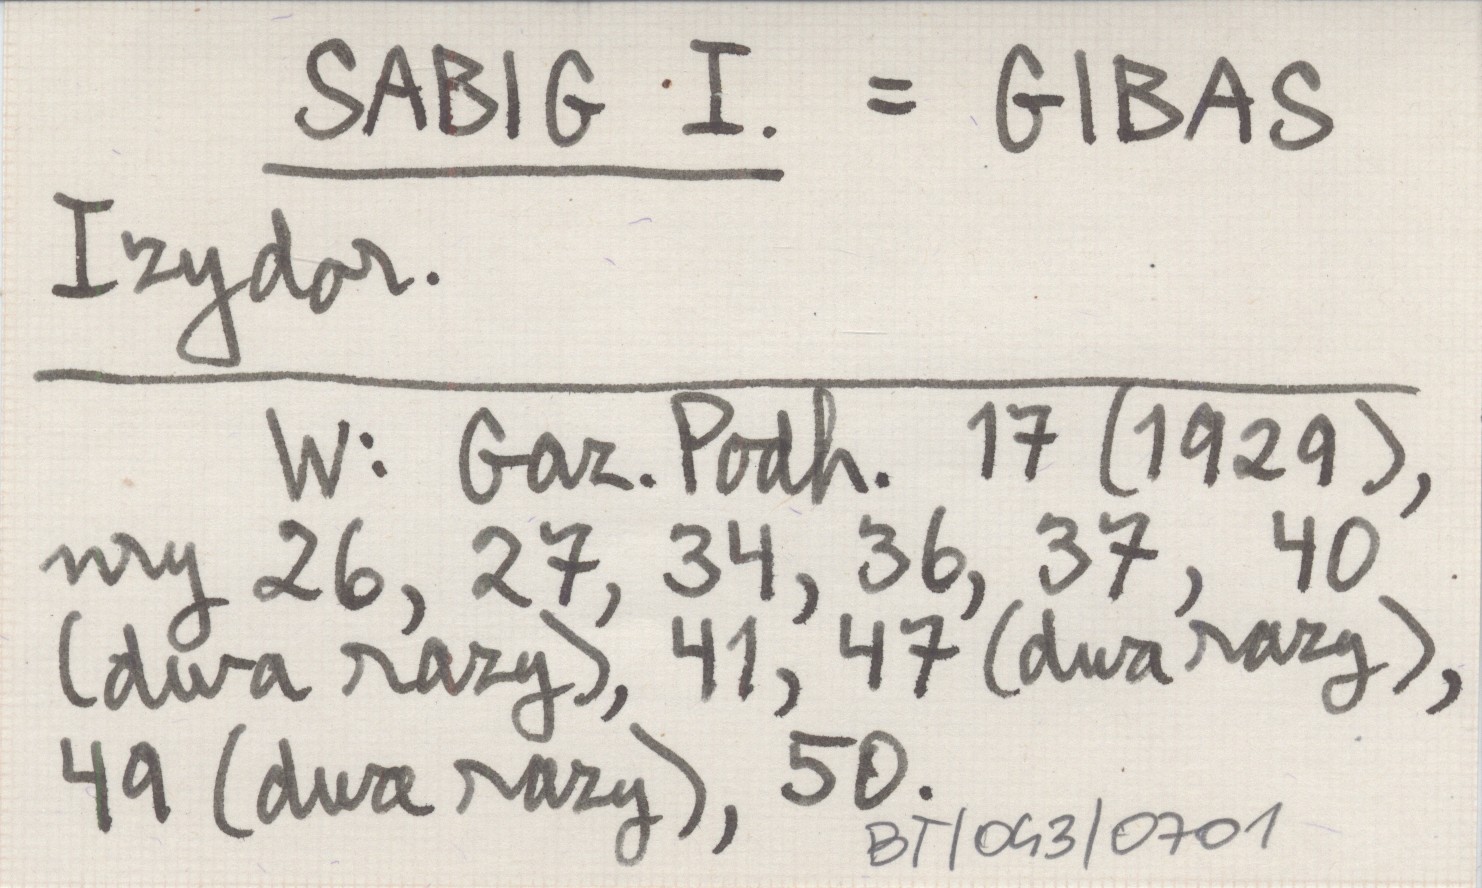 SABIG I. = GIBAS
Izydor.
W: Gaz. Podh. 17 (1929),
nry 26, 27, 34, 36, 37, 40
(dwa razy), 41, 47 (dwa razy),
49 (dwa razy), 50.
BT/043/0701